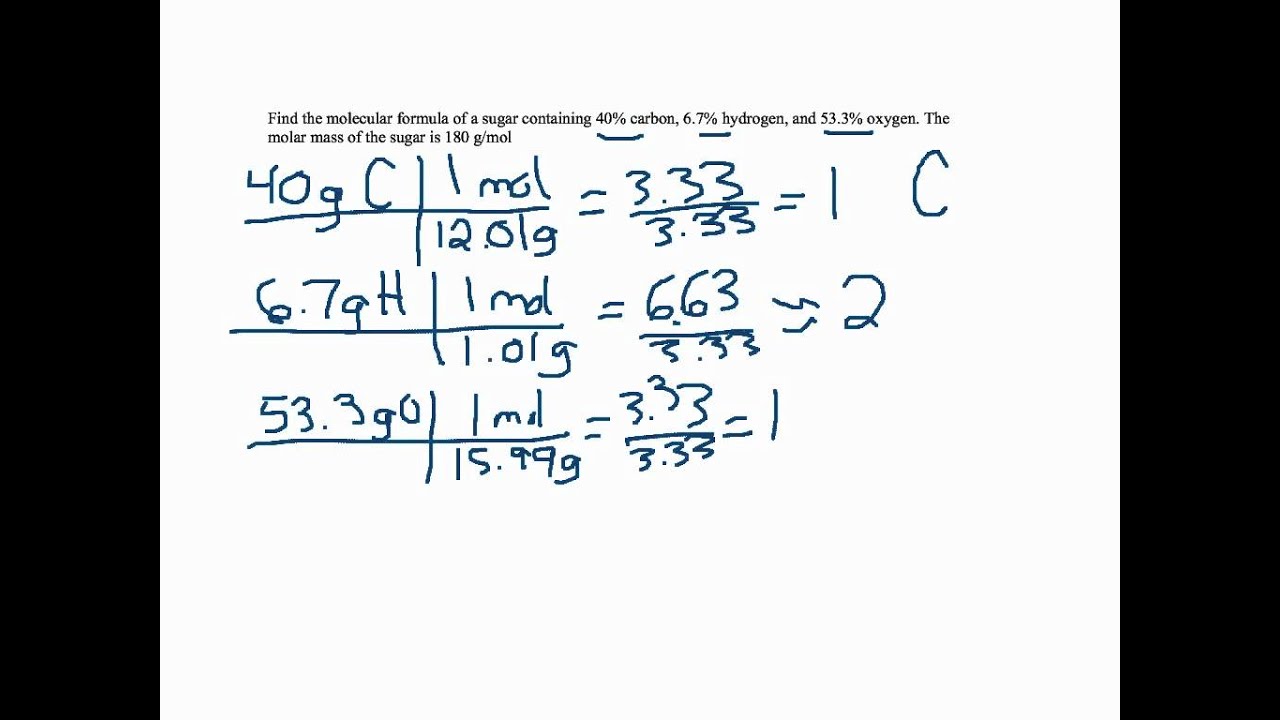 Find the molecular formula of a sugar containing 40% carbon, 6.7% hydrogen, and 53.3% oxygen. The
molar mass of the sugar is 180 g/mol
40g C | 1 mol = 3.33 = 1 C
12.01g 3.33
6.7g H | 1 mol = 6.63 ≈ 2
1.01g 3.33
53.3g O | 1 mol = 3.33 = 1
15.99g 3.33